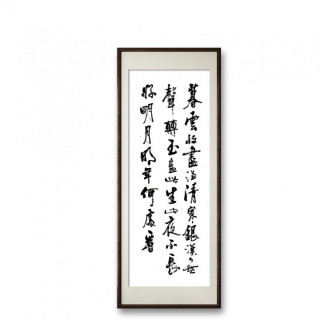 暮雲收盡溢清寒銀漢無
聲轉玉盤此生此夜不長
好明月明年何處看